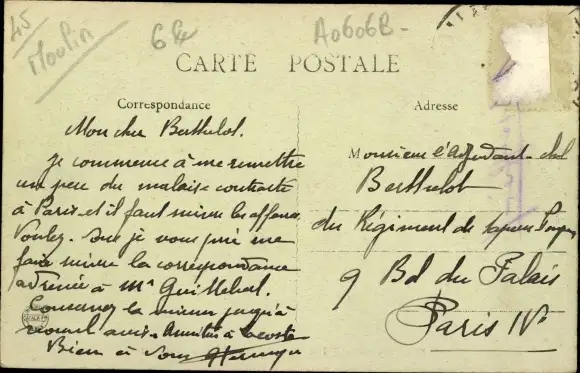 45
Moulin
6
A0606B-
CARTE POSTALE
Correspondance
Adresse
Mon cher Berthelot.
je commence à me remettre
un peu du malaise contracté
à Paris et il faut suivre les affaires
Voulez je vous prie me
faire suivre la correspondance
adressée à Mr
Conservez la mienne jusqu'à
nouvel avis Amitiés à
Bien à vous
Monsieur l'adjudant-chef
Berthelot
du Régiment de sapeurs Pompiers
9 Bd du Palais
Paris IVe